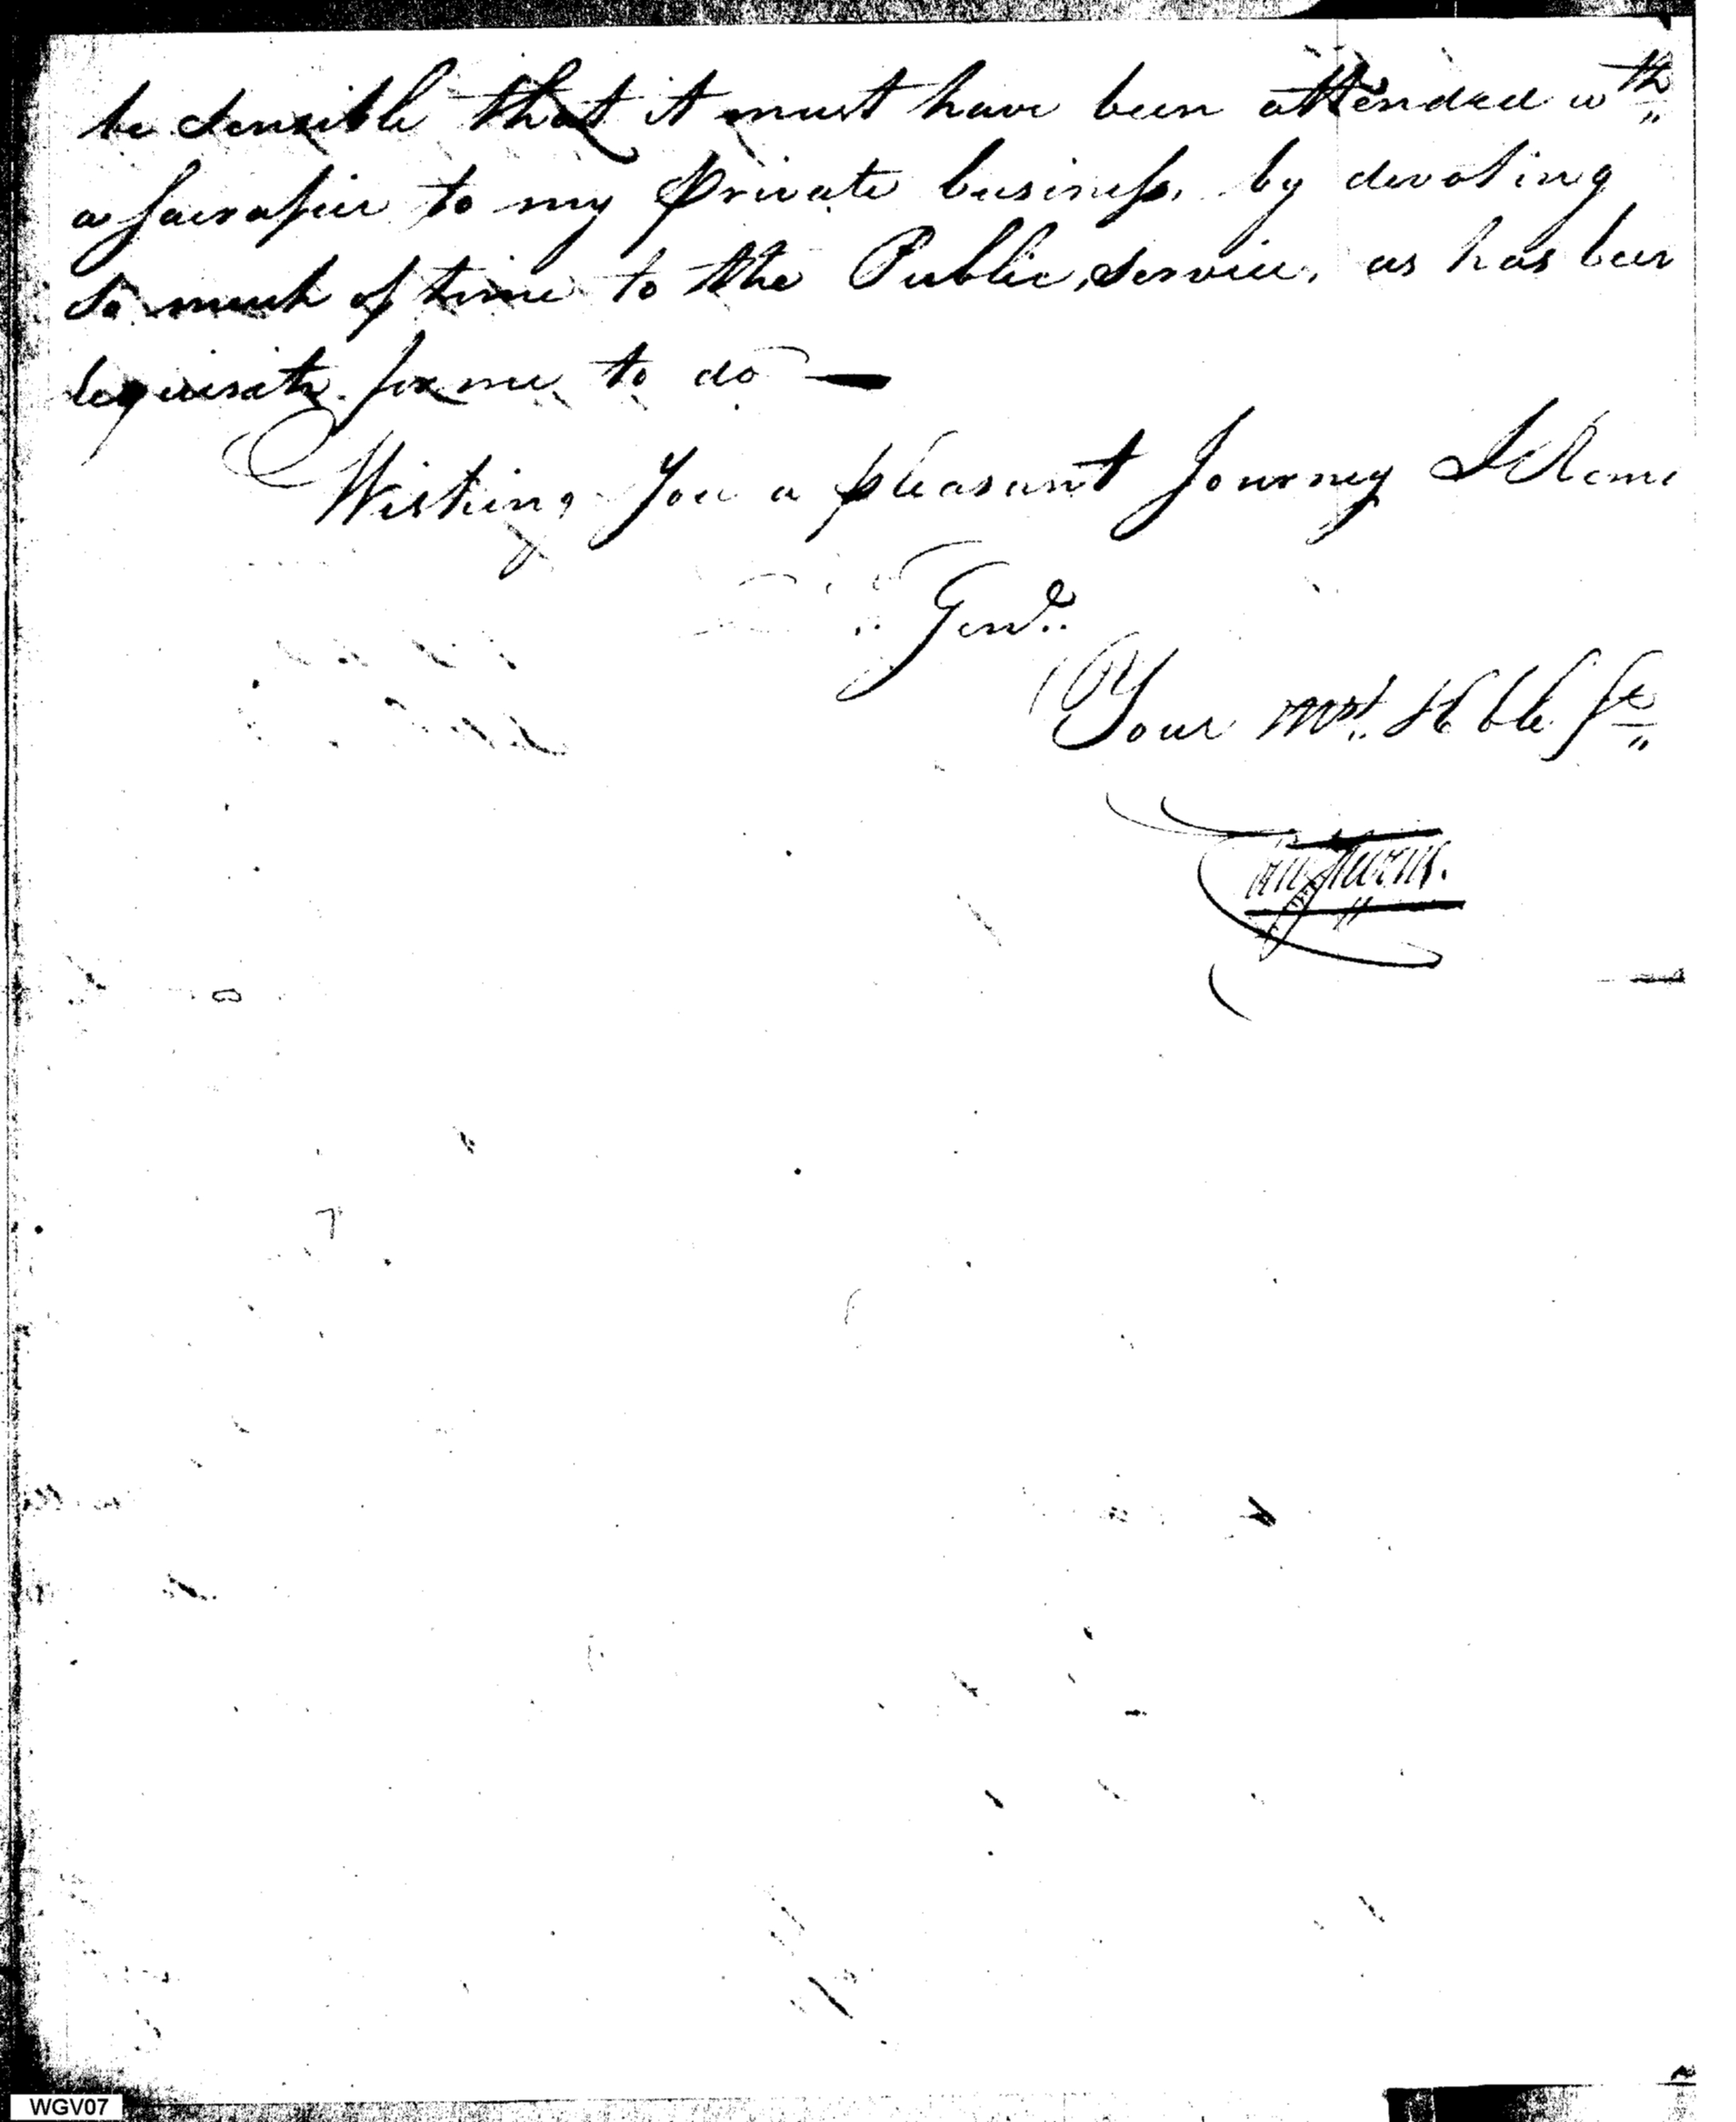 be sensible that it must have been attended wth
a sacrafice to my Private business, by devoting
so much of time to the Public, service, as has been
requisite for me to do —
Wishing You a pleasant Journey I Remn
Gent.
Your Mo.t Hble St
WGV07